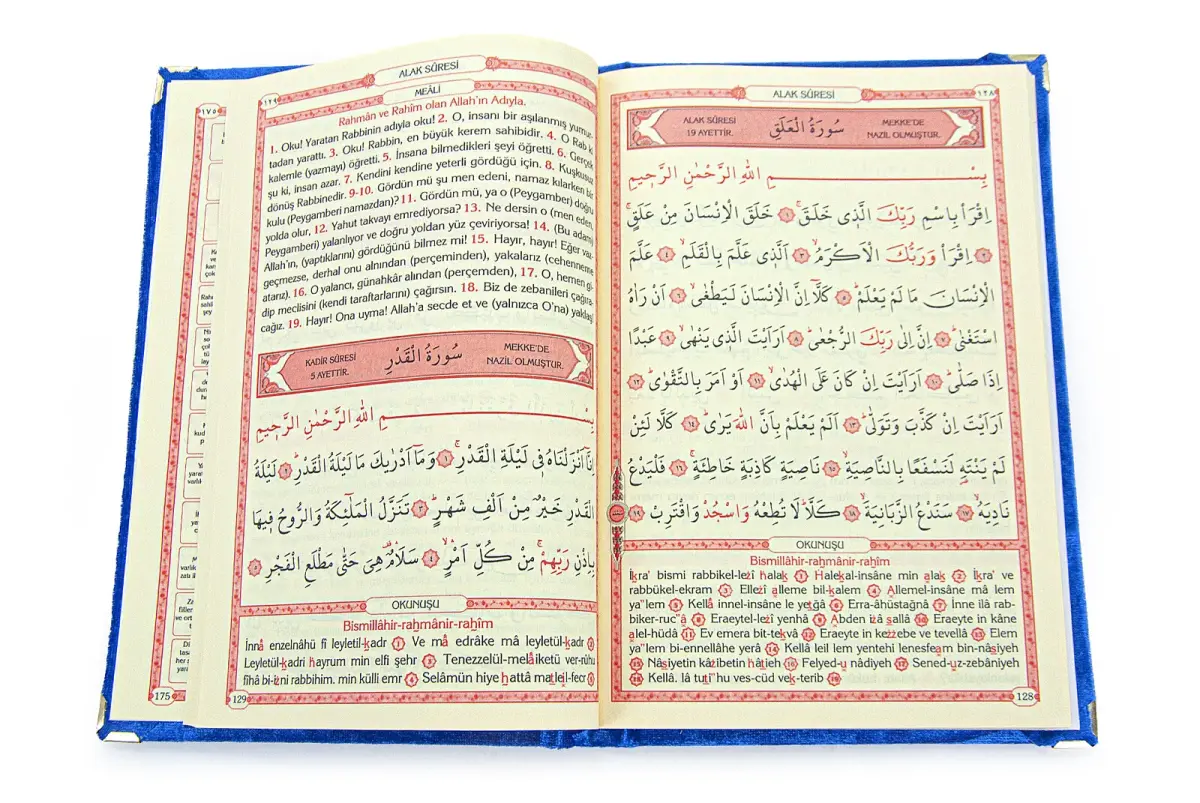 ALAK SÛRESİ
١٢٨
ALAK SÛRESİ
19 AYETTİR.
سُورَةُ الْعَلَقِ
MEKKE'DE
NAZİL OLMUŞTUR.
بِسْــــــمِ اللهِ الرَّحْمٰنِ الرَّحِيمِ
اِقْرَأْ بِاسْمِ رَبِّكَ الَّذِى خَلَقَۚ ﴿١﴾ خَلَقَ الْاِنْسَانَ مِنْ عَلَقٍۚ
﴿٢﴾ اِقْرَأْ وَرَبُّكَ الْاَكْرَمُۙ ﴿٣﴾ اَلَّذِى عَلَّمَ بِالْقَلَمِۙ ﴿٤﴾ عَلَّمَ
الْاِنْسَانَ مَا لَمْ يَعْلَمْۜ ﴿٥﴾ كَلَّٓا اِنَّ الْاِنْسَانَ لَيَطْغٰىۙ ﴿٦﴾ اَنْ رَاٰهُ
اسْتَغْنٰىۜ ﴿٧﴾ اِنَّ اِلٰى رَبِّكَ الرُّجْعٰىۜ ﴿٨﴾ اَرَاَيْتَ الَّذِى يَنْهٰىۙ ﴿٩﴾ عَبْدًا
اِذَا صَلّٰىۜ ﴿١٠﴾ اَرَاَيْتَ اِنْ كَانَ عَلَى الْهُدٰىۙ ﴿١١﴾ اَوْ اَمَرَ بِالتَّقْوٰىۜ ﴿١٢﴾
اَرَاَيْتَ اِنْ كَذَّبَ وَتَوَلّٰىۜ ﴿١٣﴾ اَلَمْ يَعْلَمْ بِاَنَّ اللهَ يَرٰىۜ ﴿١٤﴾ كَلَّا لَئِنْ
لَمْ يَنْتَهِ لَنَسْفَعًا بِالنَّاصِيَةِۙ ﴿١٥﴾ نَاصِيَةٍ كَاذِبَةٍ خَاطِئَةٍۚ ﴿١٦﴾ فَلْيَدْعُ
نَادِيَهُۙ ﴿١٧﴾ سَنَدْعُ الزَّبَانِيَةَۙ ﴿١٨﴾ كَلَّاۜ لَا تُطِعْهُ وَاسْجُدْ وَاقْتَرِبْ ﴿١٩﴾
OKUNUŞU
Bismillâhir-rahmânir-rahîm
İkra' bismi rabbikel-lezî halak ① Halekal-insâne min alak ② İkra' ve
rabbükel-ekram ③ Ellezî alleme bil-kalem ④ Allemel-insâne mâ lem
ya"lem ⑤ Kellâ innel-insâne le yetğâ ⑥ Erra-âhüstağnâ ⑦ İnne ilâ rab-
biker-ruc"â ⑧ Eraeytel-lezî yenhâ ⑨ Abden izâ sallâ ⑩ Eraeyte in kâne
alel-hüdâ ⑪ Ev emera bit-tekvâ ⑫ Eraeyte in kezzebe ve tevellâ ⑬ Elem
ya"lem bi-ennellâhe yerâ ⑭ Kellâ leil lem yentehi lenesfeam bin-nâsiyeh
⑮ Nâsiyetin kâzibetin hâtieh ⑯ Felyed-u nâdiyeh ⑰ Sened-uz-zebâniyeh
⑱ Kellâ. lâ tuti"hu ves-cüd vek-terib ⑲
128
ALAK SÛRESİ
١٢٩
MEÂLİ
Rahmân ve Rahîm olan Allah'ın Adıyla.
1. Oku! Yaratan Rabbinin adıyla oku! 2. O, insanı bir aşılanmış yumur-
tadan yarattı. 3. Oku! Rabbin, en büyük kerem sahibidir. 4. O Rab ki
kalemle (yazmayı) öğretti. 5. İnsana bilmedikleri şeyi öğretti. 6. Gerçek
şu ki, insan azar. 7. Kendini kendine yeterli gördüğü için. 8. Kuşkusuz
dönüş Rabbinedir. 9-10. Gördün mü şu men edeni, namaz kılarken bir
kulu (Peygamberi namazdan)? 11. Gördün mü, ya o (Peygamber) doğru
yolda olur, 12. Yahut takvayı emrediyorsa? 13. Ne dersin o (men eden,
Peygamberi) yalanlıyor ve doğru yoldan yüz çeviriyorsa! 14. (Bu adam)
Allah'ın, (yaptıklarını) gördüğünü bilmez mi! 15. Hayır, hayır! Eğer vaz-
geçmezse, derhal onu alnından (perçeminden), yakalarız (cehenneme
atarız). 16. O yalancı, günahkâr alından (perçemden), 17. O, hemen gi-
dip meclisini (kendi taraftarlarını) çağırsın. 18. Biz de zebanileri çağıra-
cağız. 19. Hayır! Ona uyma! Allah'a secde et ve (yalnızca O'na) yaklaş!
KADİR SÛRESİ
5 AYETTİR.
سُورَةُ الْقَدْرِ
MEKKE'DE
NAZİL OLMUŞTUR.
بِسْــــــمِ اللهِ الرَّحْمٰنِ الرَّحِيمِ
اِنَّٓا اَنْزَلْنَاهُ فِى لَيْلَةِ الْقَدْرِۚ ﴿١﴾ وَمَٓا اَدْرٰيكَ مَا لَيْلَةُ الْقَدْرِۜ ﴿٢﴾ لَيْلَةُ
الْقَدْرِ خَيْرٌ مِنْ اَلْفِ شَهْرٍۜ ﴿٣﴾ تَنَزَّلُ الْمَلٰٓئِكَةُ وَالرُّوحُ فِيهَا
بِاِذْنِ رَبِّهِمْۚ مِنْ كُلِّ اَمْرٍۙ ﴿٤﴾ سَلَامٌ۠ هِىَ حَتّٰى مَطْلَعِ الْفَجْرِ ﴿٥﴾
OKUNUŞU
Bismillâhir-rahmânir-rahîm
İnnâ enzelnâhü fî leyletil-kadr ① Ve mâ edrâke mâ leyletül-kadr ②
Leyletül-kadri hayrum min elfi şehr ③ Tenezzelül-melâiketü ver-rûhu
fîhâ bi-izni rabbihim. min külli emr ④ Selâmün hiye hattâ matleil-fecr ⑤
129
١٧٥
175